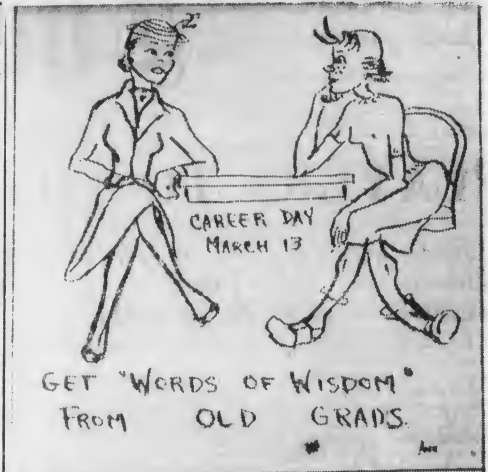 CAREER DAY
MARCH 13
GET "WORDS OF WISDOM"
FROM OLD GRADS.